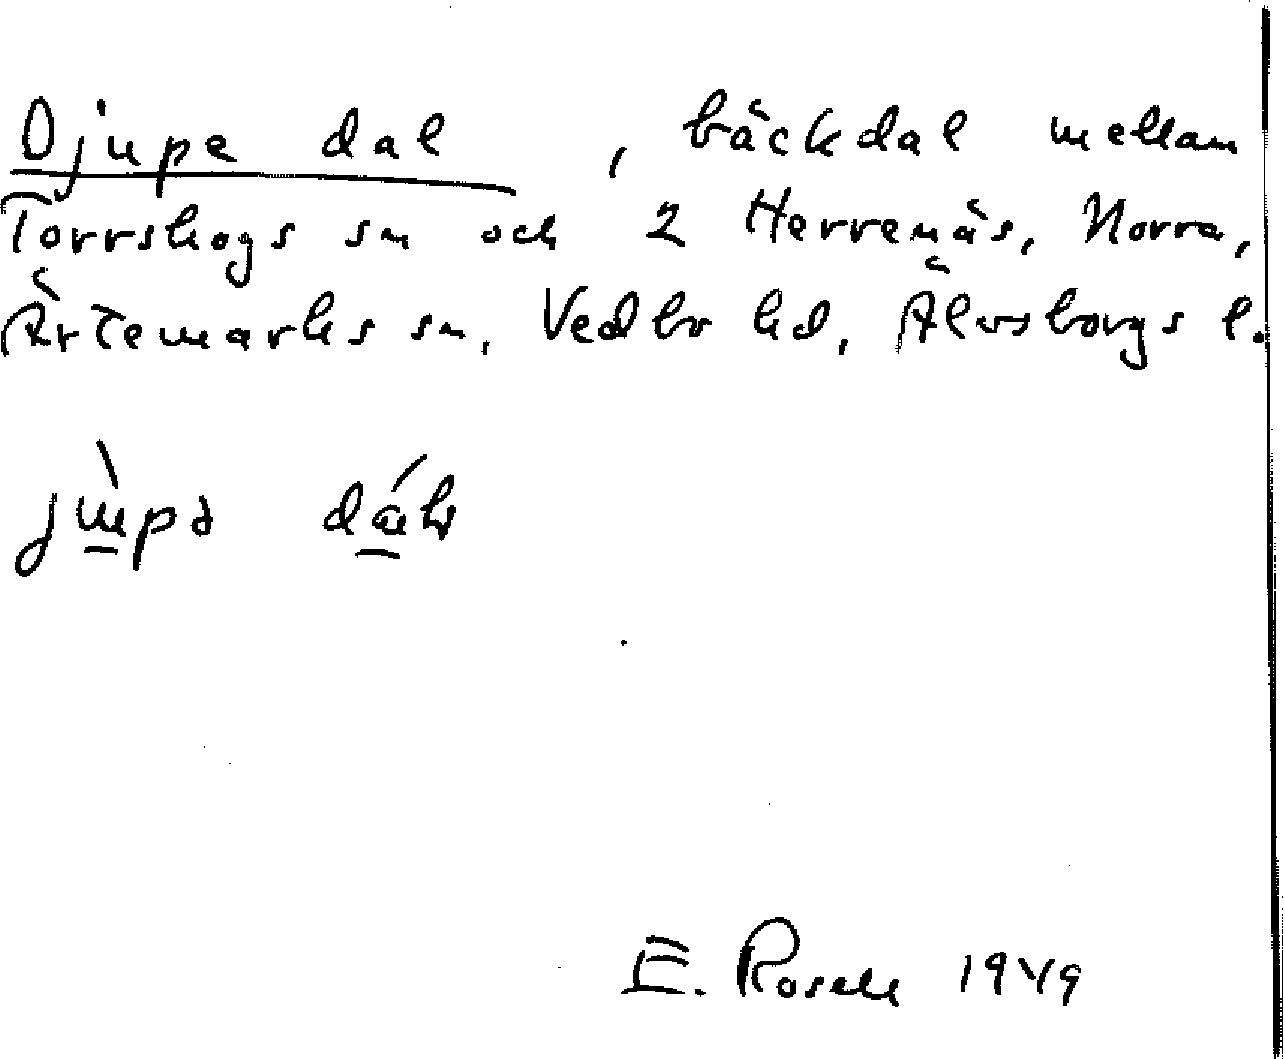 Djupe dal , bäckdal mellan
Torrskogs sn och 2 Herrenäs, Norra,
Ärtemarks sn, Vedbo hd, Älvsborgs l.
E. Rosell 1949